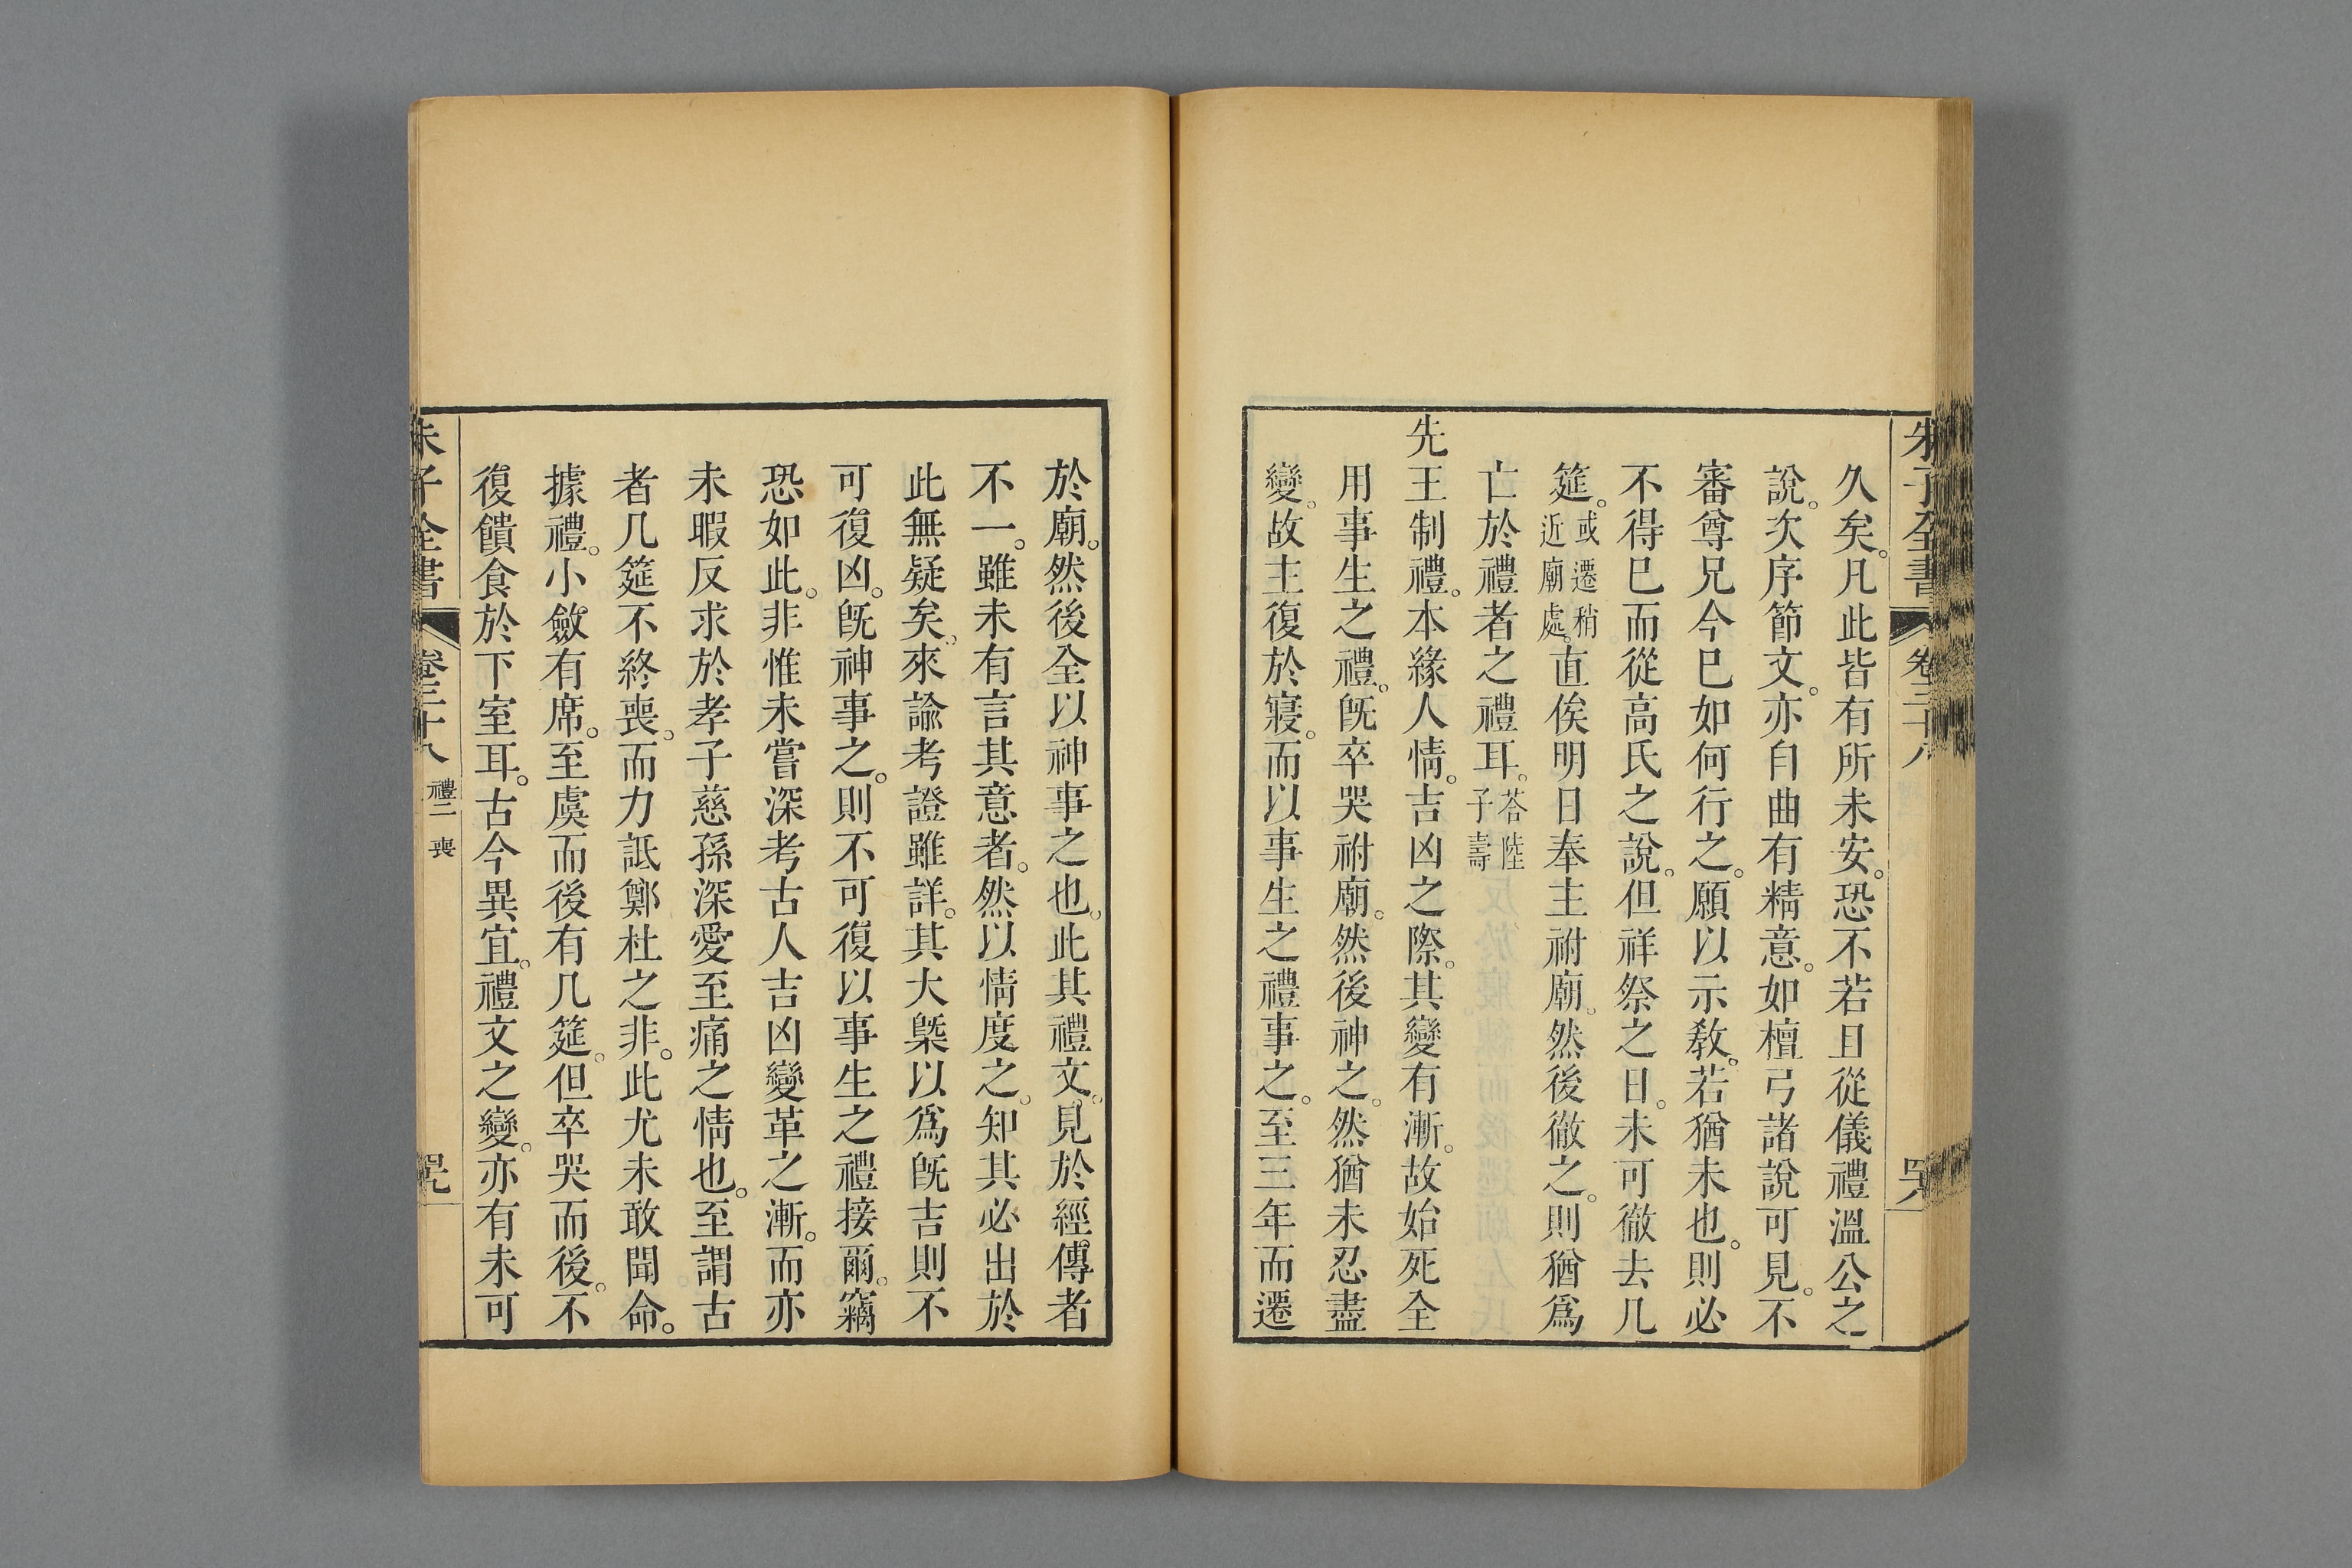 朱子全書 卷三十八
久矣。凡此皆有所未安。恐不若且從儀禮溫公之
說。次序節文。亦自曲有精意。如檀弓諸說可見。不
審尊兄今已如何行之。願以示敎。若猶未也。則必
不得已而從高氏之說。但祥祭之日。未可徹去几
筵。或遷稍近廟處。直俟明日奉主祔廟。然後徹之。則猶爲
亡於禮者之禮耳。荅陸子壽
先王制禮。本緣人情。吉凶之際。其變有漸。故始死全
用事生之禮。旣卒哭祔廟。然後神之。然猶未忍盡
變。故主復於寢。而以事生之禮事之。至三年而遷
於廟。然後全以神事之也。此其禮文。見於經傳者
不一。雖未有言其意者。然以情度之。知其必出於
此無疑矣。來諭考證雖詳。其大槩以爲旣吉則不
可復凶。旣神事之。則不可復以事生之禮接爾。竊
恐如此。非惟未嘗深考古人吉凶變革之漸。而亦
未暇反求於孝子慈孫深愛至痛之情也。至謂古
者几筵不終喪。而力詆鄭杜之非。此尤未敢聞命。
據禮。小斂有席。至虞而後有几筵。但卒哭而後。不
復饋食於下室耳。古今異宜。禮文之變。亦有未可
朱子全書 卷三十八 禮二 喪